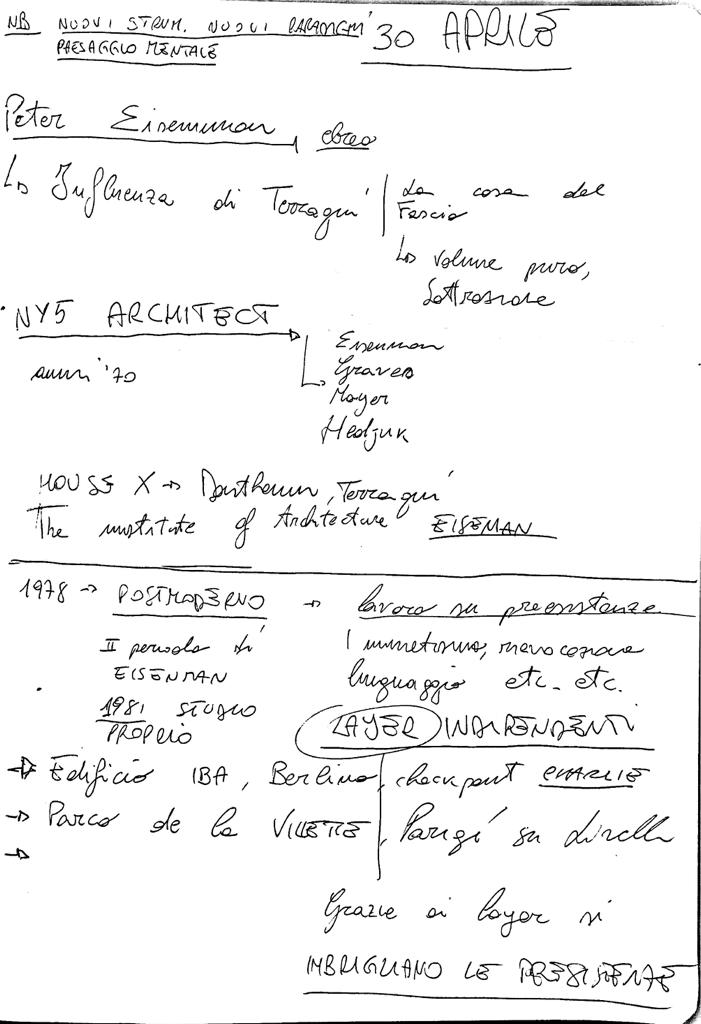 NB NUOVI STRUM. NUOVI PARADIGMI
PAESAGGIO MENTALE
30 APRILE
Peter Eisemman ebreo
↳ Influenza di Terragni
La casa del
Fascio
↳ Volume puro,
Sottrazione
NY5 ARCHITECT
anni '70
Eisenman
Graves
Mayer
Hedjuk
HOUSE X → Terragni
The institute of Architecture EISEMAN
1978 → POSTMODERNO → lavoro su preesistenze
II periodo di
EISENMAN
1981 STUDIO
PROPRIO
mimetismo, rievocazione
linguaggio etc. etc.
LAYER INDIPENDENTI
→ Edificio IBA, Berlino, checkpoint CHARLIE
→ Parco de la VILLETTE, Parigi su livelli
→
Grazie ai layer si
IMBRIGLIANO LE PRESISTENZE